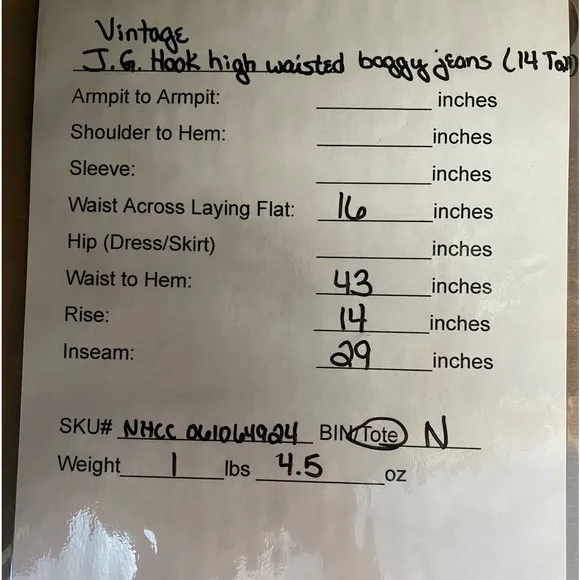 Vintage
J.G. Hook high waisted baggy jeans (14 Tall)
Armpit to Armpit: ____________ inches
Shoulder to Hem: ____________ inches
Sleeve: ____________ inches
Waist Across Laying Flat: 16 inches
Hip (Dress/Skirt) ____________ inches
Waist to Hem: 43 inches
Rise: 14 inches
Inseam: 29 inches
SKU# NHCC 061064924 BIN/Tote N
Weight 1 lbs 4.5 oz